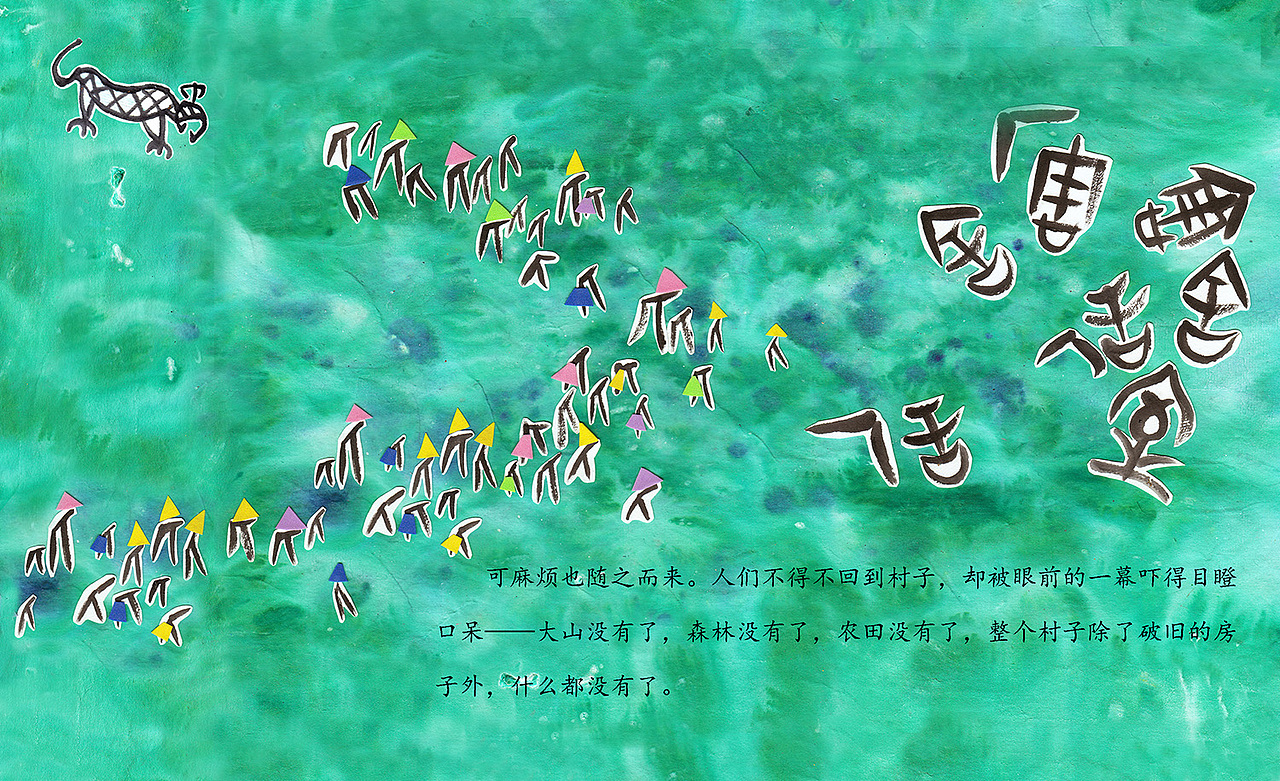 可麻烦也随之而来。人们不得不回到村子，却被眼前的一幕吓得目瞪
口呆——大山没有了，森林没有了，农田没有了，整个村子除了破旧的房
子外，什么都没有了。